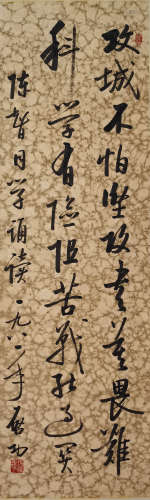 攻城不怕坚攻书莫畏难
科学有险阻苦战能过关
陈智同学诵读一九八一年启功